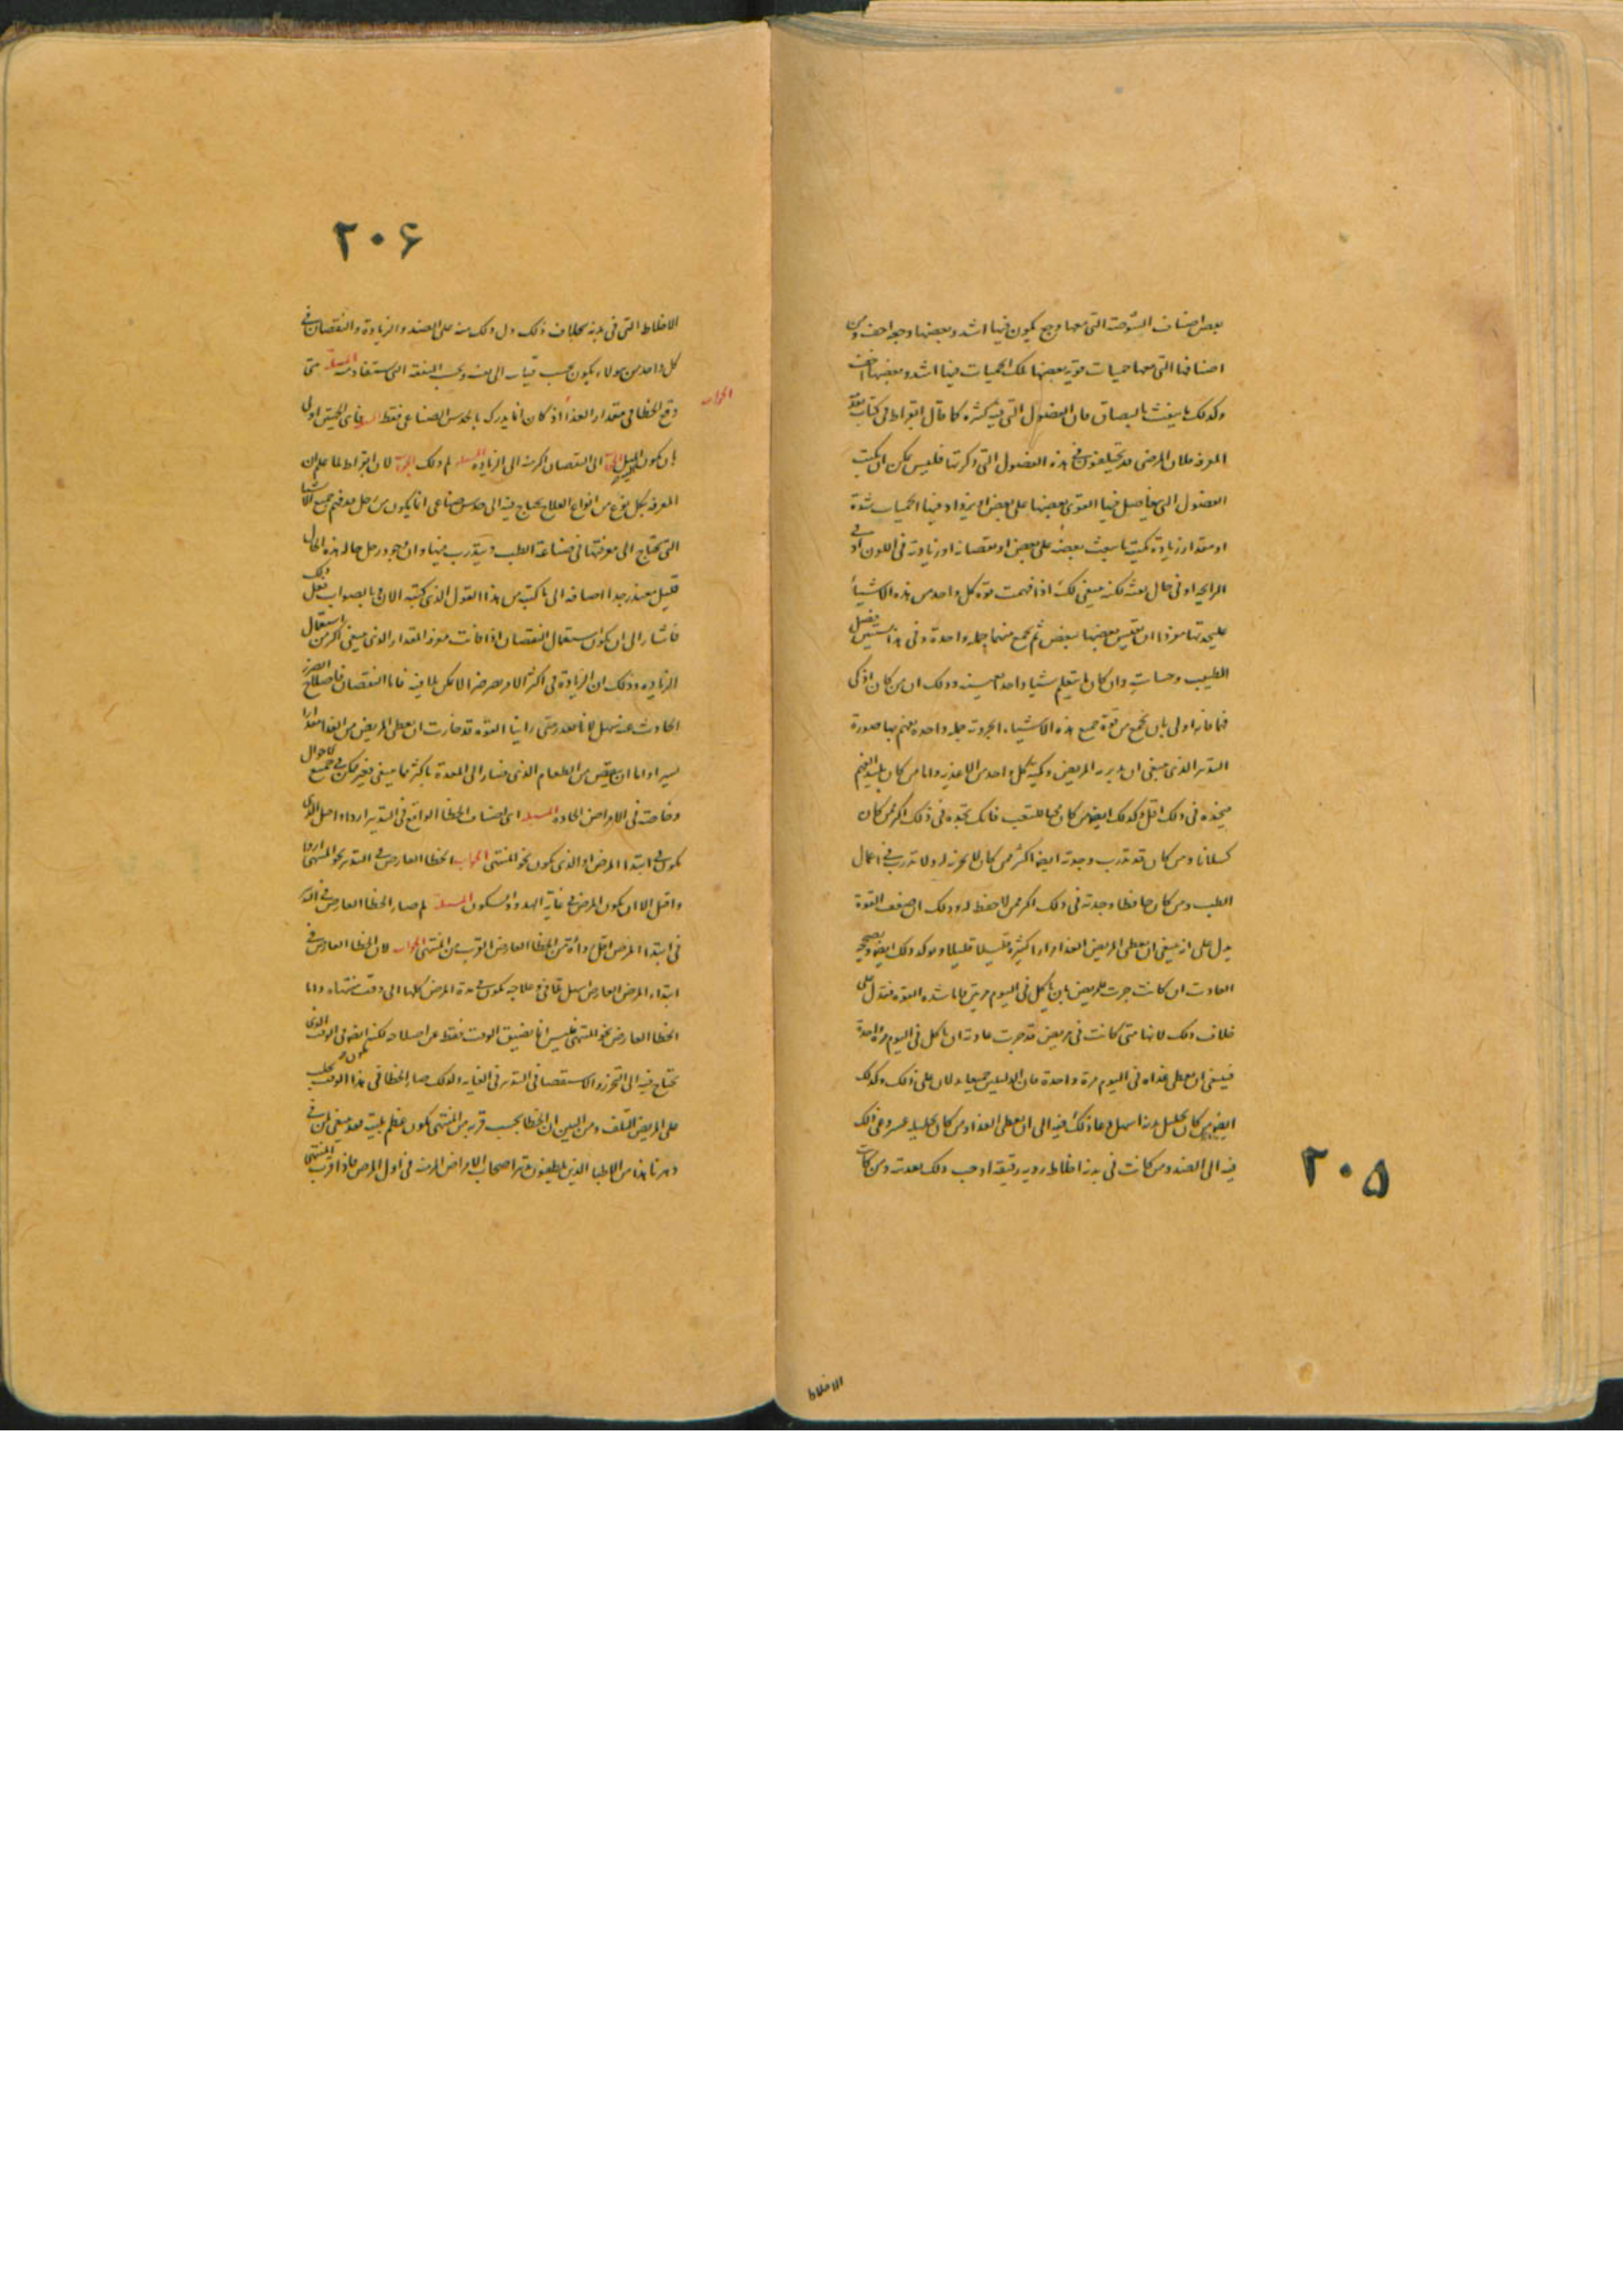 بعض اصناف الشوصة التى معها وجع يكون فيها اشد وبعضها وجع اخف ومن
اصنافها التى معها حميات قوية بعضها تلك الحميات فيها اشد وبعضها اخف
وكذلك ما ينفث بالبصاق فان الفصول التى فيه كثيرة كما قال ابقراط فى كتاب تقدمة
المعرفة فلان المرضى قد يختلفون فى هذه الفصول التى ذكرتها فليس يمكن ان يكتب
الفصول التى تفاضل فيها القوى بعضها على بعض او يزداد فيها الحميات شدة
او مقدار زيادة كمية ما ينفث بعضه على بعض او نقصانه او زيادته فى اللون او فى
الرايحة او فى حال نفثه لكنه ينبغى لك اذا فهمت قوة كل واحد من هذه الاشياء
عليحدتها مفردا ان تقيس بعضها ببعض ثم تجمع منها جملة واحدة وفى هذا يستبين فضل
الطبيب وان كان ما يتعلم شيا واحدا بعينه وذلك ان من كان اذكى
فهما فانه اولى بان يجمع من قوة جميع هذه الاشياء الجزوية جملة واحدة يفهم بها صورة
التدبير الذى ينبغى ان يدبر به المريض وكمية كل واحد من الاغذية واما من كان بليد الفهم
فتجده فى ذلك اقل وكذلك ايضا من كان محبا للتعب فانك تجده فى ذلك اكثر ممن كان
كسلانا ومن كان قد تدرب وجدته ايضا اكثر ممن كان لا تجربة له ولا تدرب فى اعمال
الطب ومن كان حافظا وجدته فى ذلك اكثر ممن لا حفظ له وذلك ان ضعف القوة
يدل على انه ينبغى ان يعطى المريض الغذا مرارا كثيرة قليلا قليلا ويوكد ذلك ايضا ويصححه
العادة ان كانت جرت للمريض بان ياكل فى اليوم مرتين فاما شدة القوة فتدل على
خلاف ذلك لانها متى كانت فى مريض قد جرت عادته ان ياكل فى اليوم مرة واحدة
فينبغى ان يعطى غذاه فى اليوم مرة واحدة فان الدليلين جميعا يدلان على ذلك وكذلك
ايضا من كان تحليل بدنه اسهل دعا ذلك فيه الى ان يعطى الغذا ومن كان تحليله عسر دعى ذلك
فيه الى الضد ومن كانت فى بدنه اخلاط ردية رقيقة اوجب ذلك بعدته ومن كانت
٢٠۵
الاخلاط
٢٠۶
الاخلاط التى فى بدنه بخلاف ذلك دل ذلك منه على الضد والزيادة والنقصان فى
كل واحد من هولاء يكون بحسب وبحسب المنفعة التى يستفاد منه المسئلة متى
وقع الخطا فى مقدار الغذا اذ كان انما يدرك بالحدس الصناعى فقط فاى الجهتين اولى
الجواب
بان يكون الميل الى النقصان اكثر منه الى الزيادة المسئلة لم ذلك الجواب لان ابقراط لما علم ان
المعرفة بكل نوع من انواع العلاج يحتاج فيه الى حدس صناعى انما يكون من رجل قد فهم جميع الاشيا
التى يحتاج الى معرفتها فى صناعة الطب وتدرب فيها وان وجود رجل حاله هذه الحال
قليل معتذر جدا اضافه الى ما كتب من هذا القول الذى كتبه الان بالصواب فعل ذلك
فاشار الى ان يكون استعمال النقصان اذا فاتت معرفة المقدار الذى ينبغى اكثر من استعمال
الزيادة وذلك ان الزيادة فى اكثر الامر يضر ضررا لا يمكن تلافيه فاما النقصان فاصلاح الضرر
الحادث عنه سهل لانا نقدر متى راينا القوة قد خارت ان نعطى المريض من الغذا مقدارا
يسيرا واما ان ينقص من الطعام الذى قد صار الى المعدة باكثر مما ينبغى فغير ممكن فى جميع الاحوال
وخاصة فى الامراض الحادة المسئلة اى اصناف الخطا الواقع فى التدبير اردا واجل الذى
يكون فى ابتدا المرض او الذى يكون نحو المنتهى الجواب الخطا العارض فى التدبير نحو المنتهى اردا
واقتل الا ان يكون المرض فى غاية الهدو والسكون المسئلة لم صار الخطا العارض فى التدبير
فى ابتدا المرض اقل رداءة من الخطا العارض القرب من المنتهى الجواب لان الخطا العارض فى
ابتداء المرض العارض اسهل تلافى وعلاجه يكون فى مدة المرض كلها الى وقت منتهاه واما
الخطا العارض نحو المنتهى فليس انما يضيق الوقت فقط عن اصلاحه لكنه ايضا فى الوقت الذى
يحتاج فيه الى التحرز والاستقصا فى التدبير فى الغاية ولذلك صار الخطا فى هذا الوقت يجلب
على المريض التلف ومن البين ان الخطا بحسب قربه من المنتهى يكون عظم بليته فقد ينبغى لمن فى
دهرنا هذا من الاطبا الذين يلطفون تدبير اصحاب الامراض المزمنة فى اول المرض فاذا قرب المنتهى